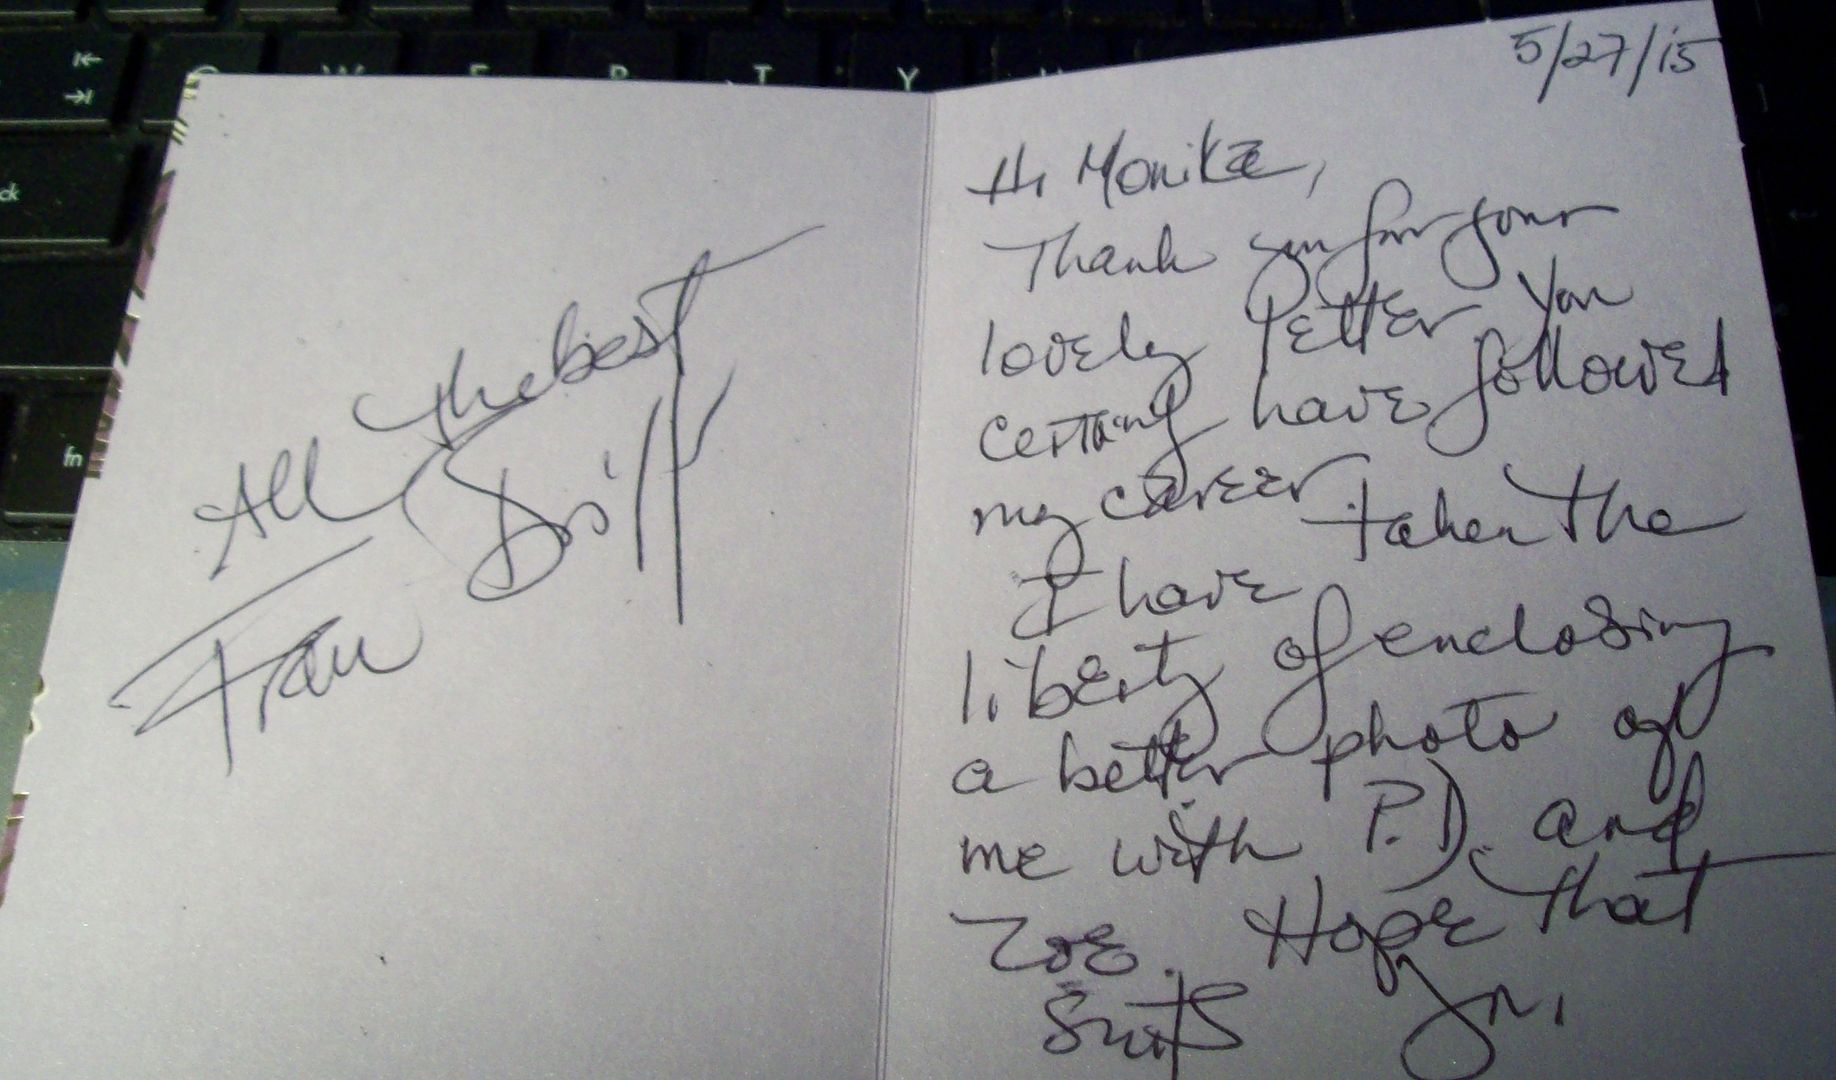 All the best
Fran Brill
5/27/15
Hi Monika,
Thank you for your
lovely letter. You
certainly have followed
my career.
I have taken the
liberty of enclosing
a better photo of
me with P.D. and
Zoe. Hope that
suits you.
W
E
R
T
Y
fn